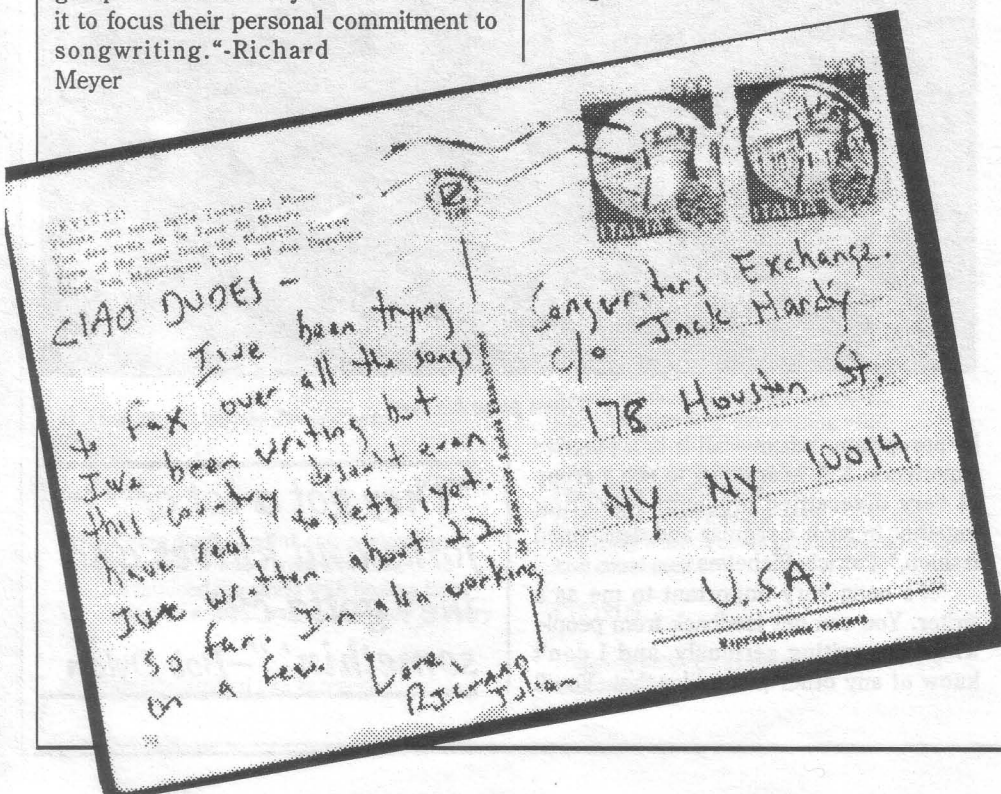 it to focus their personal commitment to
songwriting."-Richard
Meyer
ITALIA
ITALIA
CIAO DUDES -
I've been trying
to fax over all the songs
I've been writing but
this country doesn't even
have real toilets, yet.
I've written about 22
so far. I'm also working
on a few. Love,
RICHARD
Julian
Songwriters Exchange.
c/o Jack Hardy
178 Houston St.
NY NY 10014
U.S.A.
tant to me as
from people
and I don't
know of any